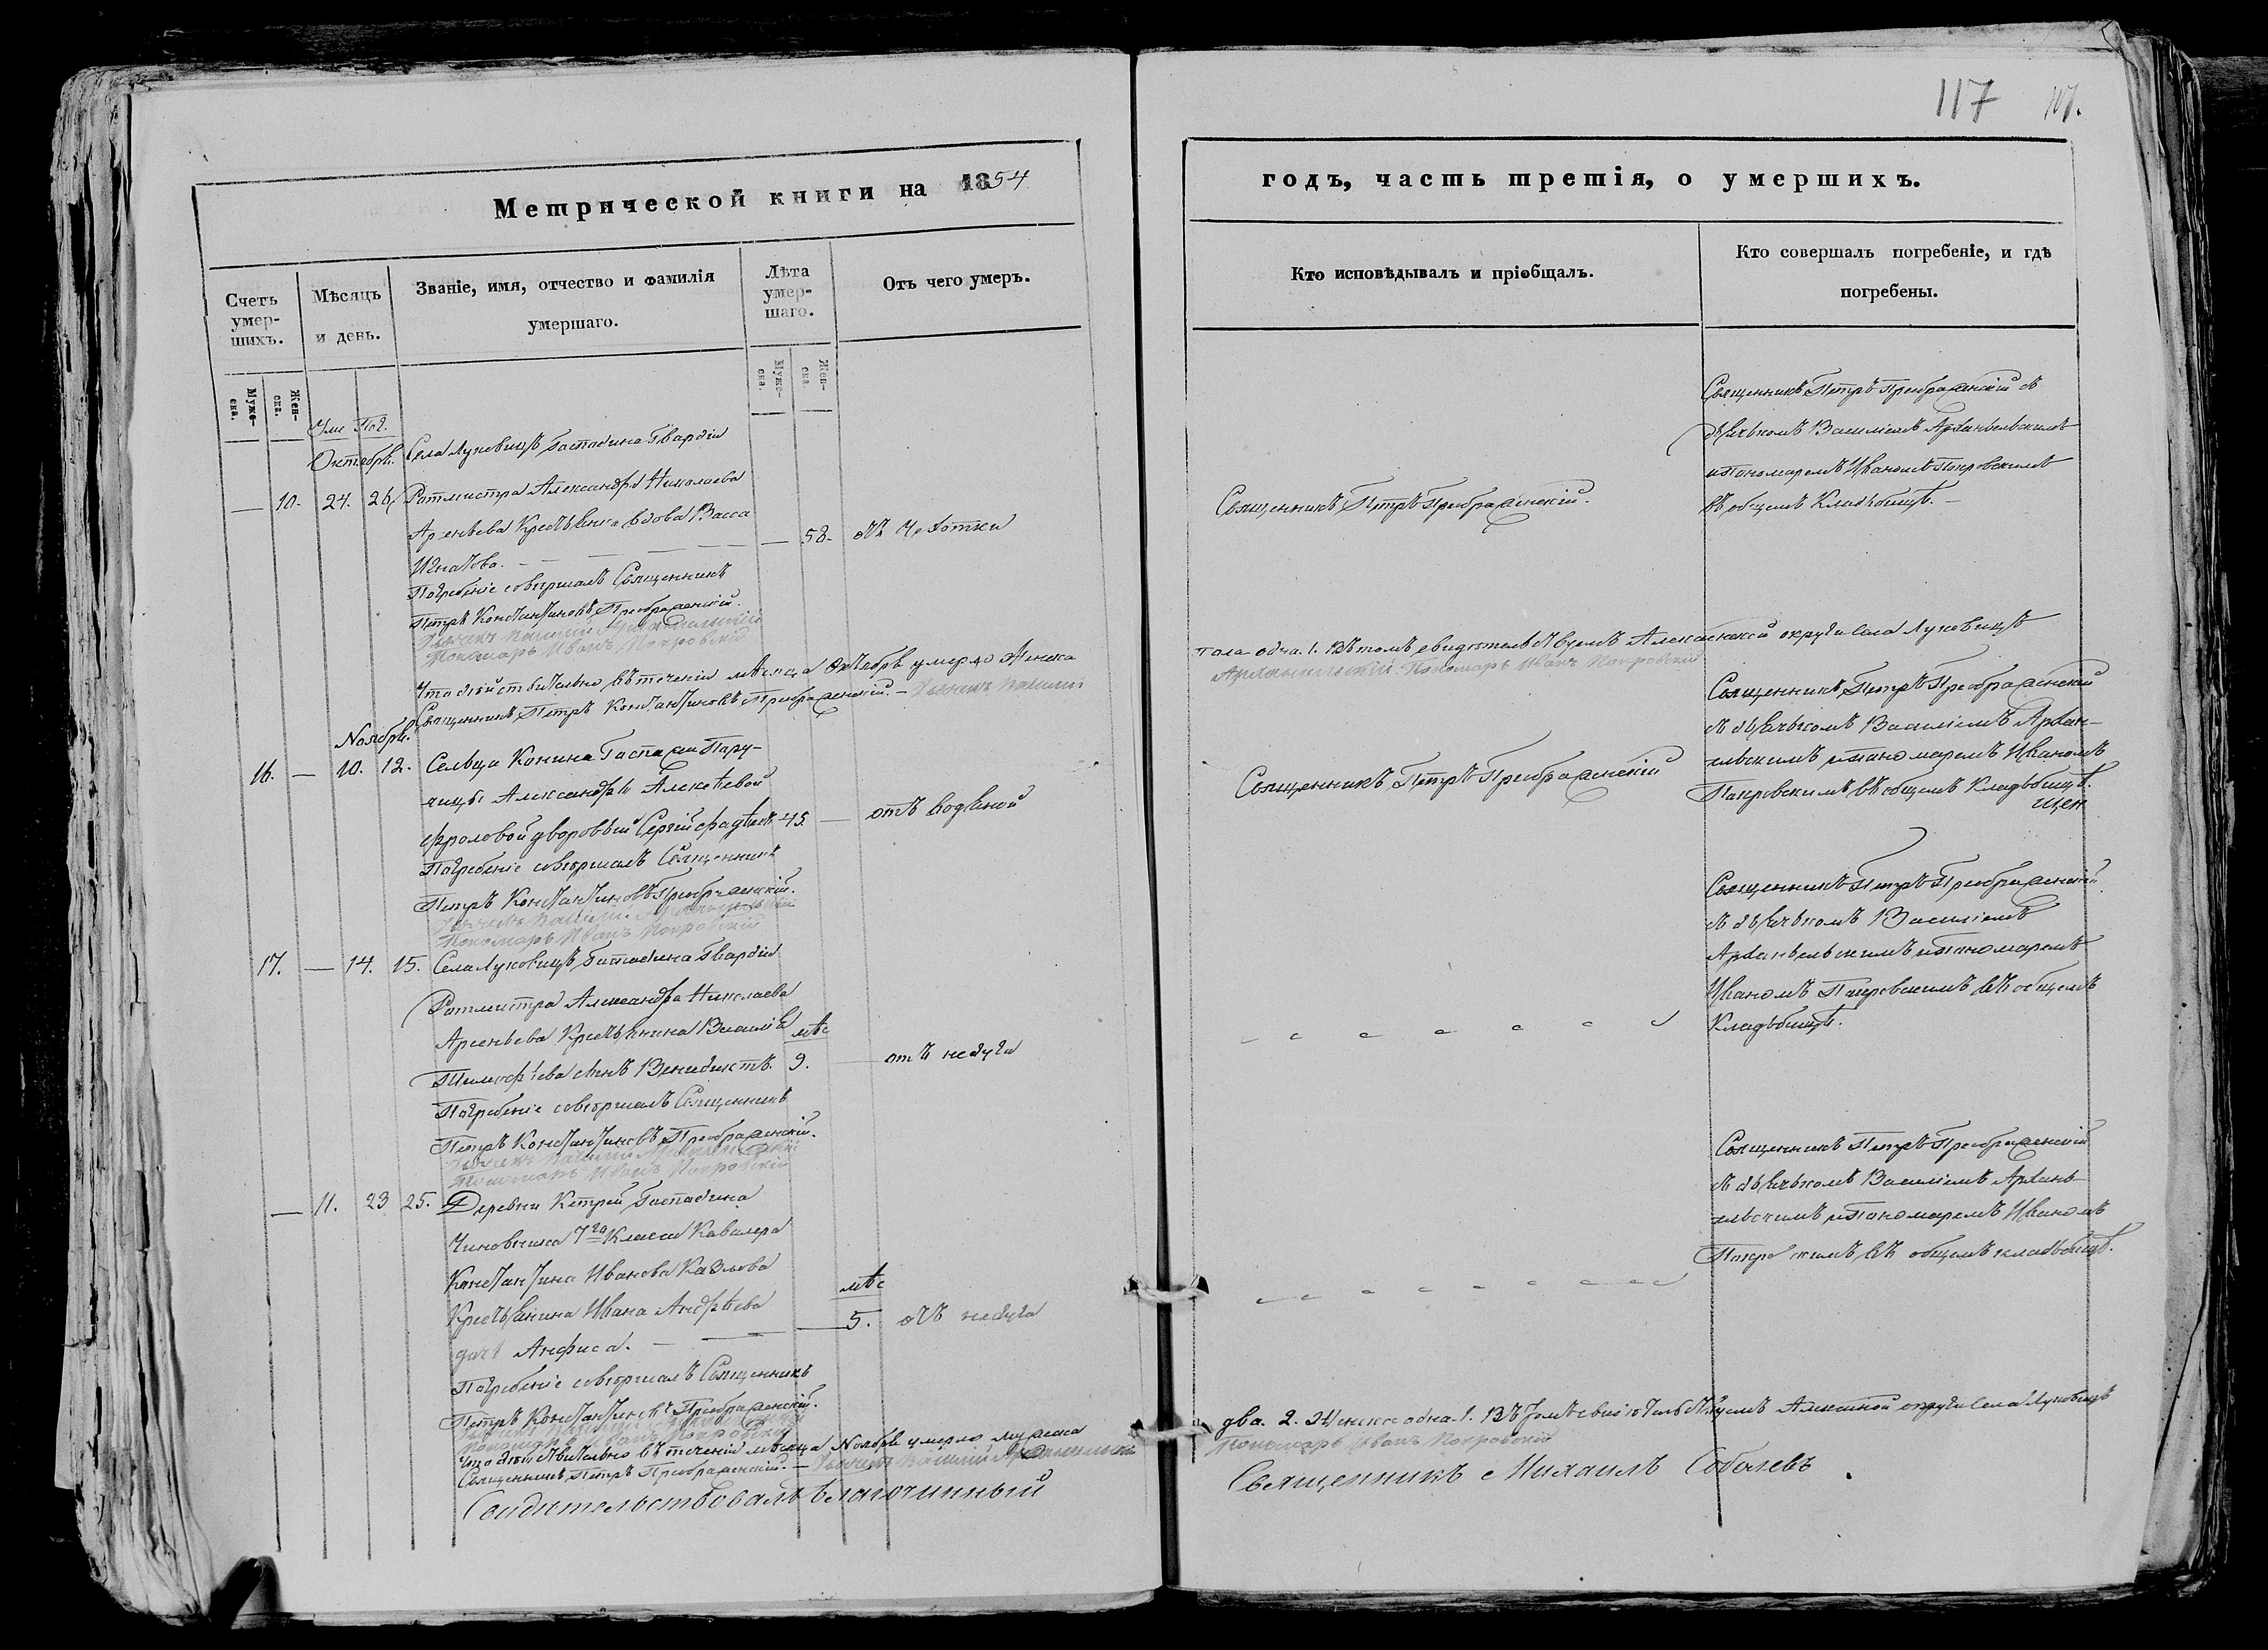 117 117.
Метрической книги на 1854
годъ, часть третія, о умершихъ.
Счетъ умер-шихъ.
Мѣсяцъ и день.
Званіе, имя, отчество и фамилія умершаго.
Лѣта умер-шаго.
Отъ чего умеръ.
Кто исповѣдывалъ и пріобщалъ.
Кто совершалъ погребеніе, и гдѣ погребены.
Муже-ска.
Жен-ска.
Муже-ска.
Жен-ска.
Уме Пог.
Октебрь. Села Луковицъ Господина Гвардіи
— 10. 24. 26 Ротмистра Александра Николаева
Арсеньева Крестьянка вдова Васса
Игнатова. — — 58. отъ Чехотки
Погребеніе совершалъ Священникъ
Петръ Константиновъ Преображенскій.
Дьячекъ Василий Архангельский
Пономарь Иванъ Покровскій
Священникъ Петръ Преображенскій.
Священникъ Петръ Преображенскій съ
дьячькомъ Василіемъ Архангельскимъ
и Пономаремъ Иваномъ Покровскимъ
въ общемъ Кладбищѣ. —
Что действительно въ теченіи мѣсяца Октебрь умерло Женска
пола одна. 1. Въ томъ свидетельствуемъ Алексинской округи Села Луковицъ
Священникъ Петръ Константиновъ Преображенскій. — Дьячекъ Василий
Архангельский Пономарь Иванъ Покровскій
Ноябрь.
16. — 10. 12. Сельца Конина Госпожи Пору-
чицы Александры Алексѣевой
Фроловой дворовый Сергій Фадѣевъ 45. — отъ водяной
Погребеніе совершалъ Священникъ
Петръ Константиновъ Преображенскій.
Дьячекъ Василий Архангельский
Пономарь Иванъ Покровскій
Священникъ Петръ Преображенскій
Священникъ Петръ Преображенскій
съ дьячькомъ Василіемъ Архан-
ельскимъ и пономаремъ Иваномъ
Покровскимъ въ общемъ Кладбищѣ.
17. — 14. 15. Села Луковицъ Господина Гвардіи
Ротмистра Александра Николаева
Арсеньева Крестьянина Василія
Тимофѣева сынъ Венидиктъ. мѣс 9. отъ недуга
Погребеніе совершалъ Священникъ
Петръ Константиновъ Преображенскій.
Дьячекъ Василий Архангельский
Пономарь Иванъ Покровскій
Священникъ Петръ Преображенскій
съ дьячькомъ Василіемъ
Архангельскимъ и пономаремъ
Иваномъ Покровскимъ въ общемъ
Кладьбищѣ.
— 11. 23 25. Деревни Кетрей Господина
Чиновника 7го Класса Кавалера
Константина Иванова Казлова
Крестьянина Ивана Андрѣева
дочь Анфиса. — мѣс 5. отъ недуга
Погребеніе совершалъ Священникъ
Петръ Константиновъ Преображенскій.
Пономарь Иванъ Покровскій
Священникъ Петръ Преображенскій
съ дьячькомъ Василіемъ Архань-
ельскимъ и пономаремъ Иваномъ
въ общемъ кладьбищѣ.
Что действительно въ теченіи мѣсяца Ноябрь умерло мужска
два. 2. Женска одна. 1. Въ томъ свидетельствуемъ Алексинской округи Села Луковицъ
Священникъ Петръ Преображенскій. — Дьячекъ Василий Архангельский
Пономарь Иванъ Покровскій
Свидительствовалъ благочинный
Священникъ Михаилъ Соболевъ.